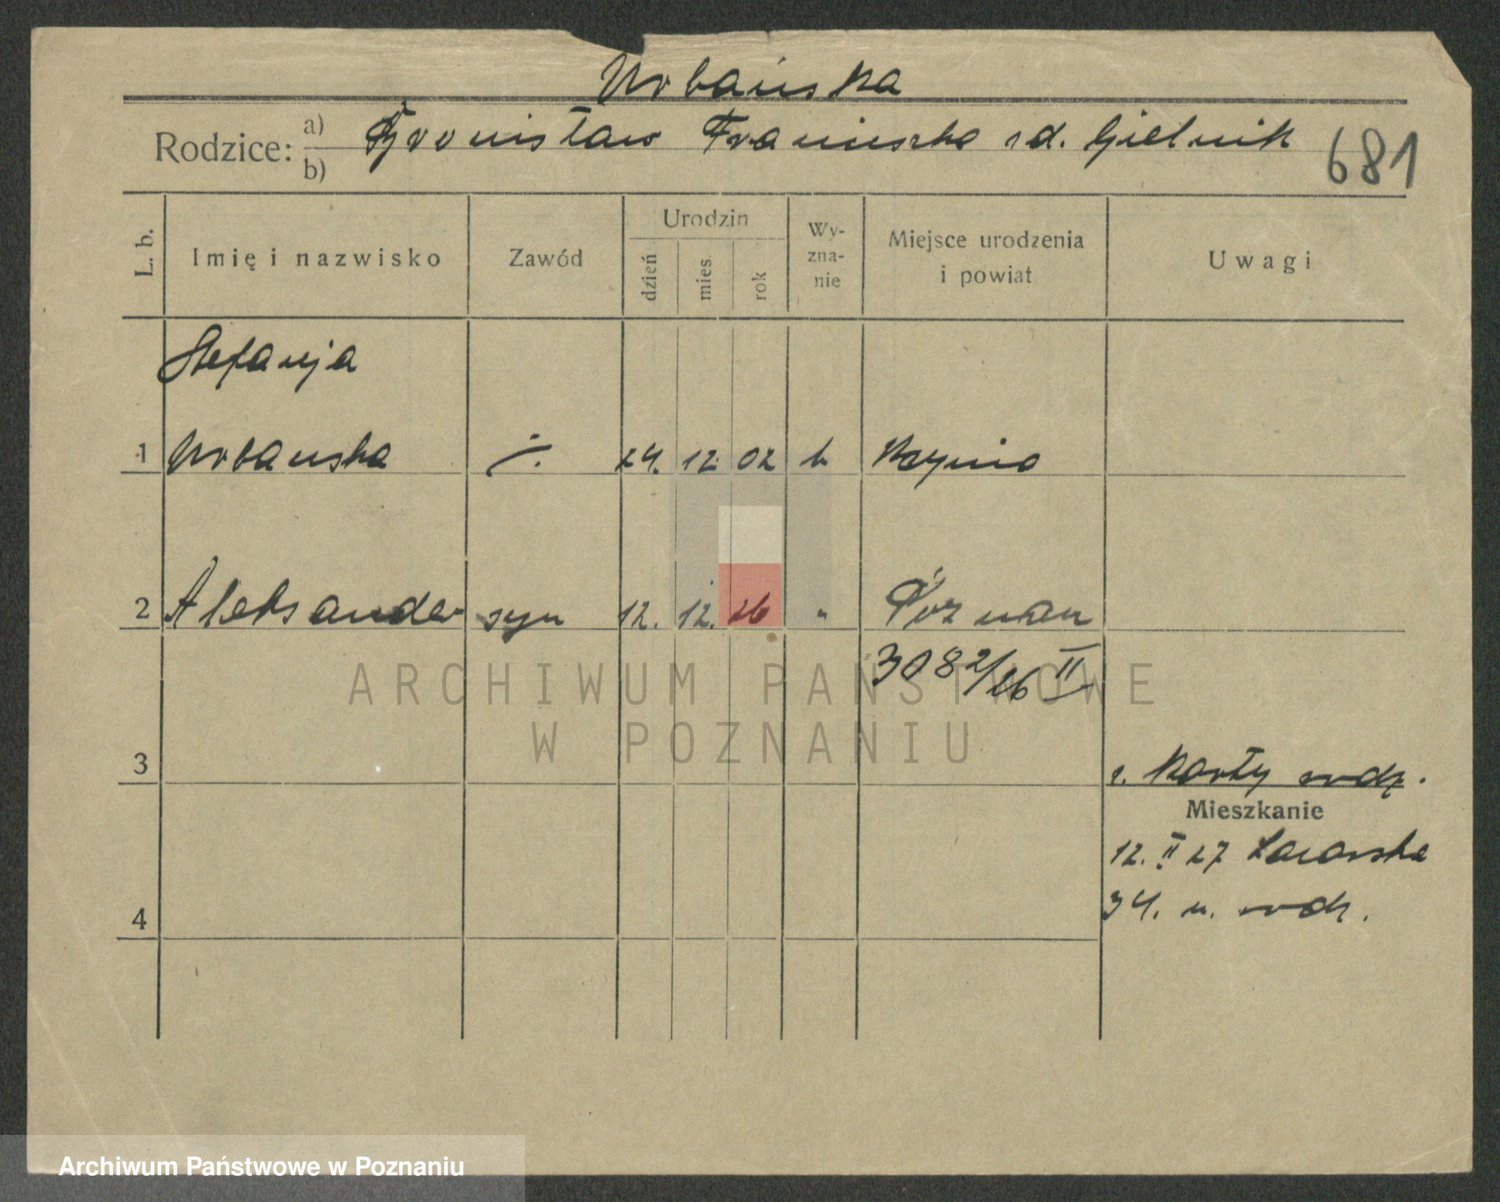 Urbańska
Rodzice: a) Bronisław Franciszka zd. Gielnik
b)
681
L. b.
Imię i nazwisko
Zawód
Urodzin
dzień
mies.
rok
Wy-
zna-
nie
Miejsce urodzenia
i powiat
Uwagi
Stefanja
1 Urbanska ·/. 24. 12 02 k
2 Aleksander syn 12. 12. 26 " Poznań
3082/26 II
3
z. Karty rodz.
Mieszkanie
12. II 27
34. u. rodz.
4
ARCHIWUM PAŃSTWOWE
W POZNANIU
Archiwum Państwowe w Poznaniu